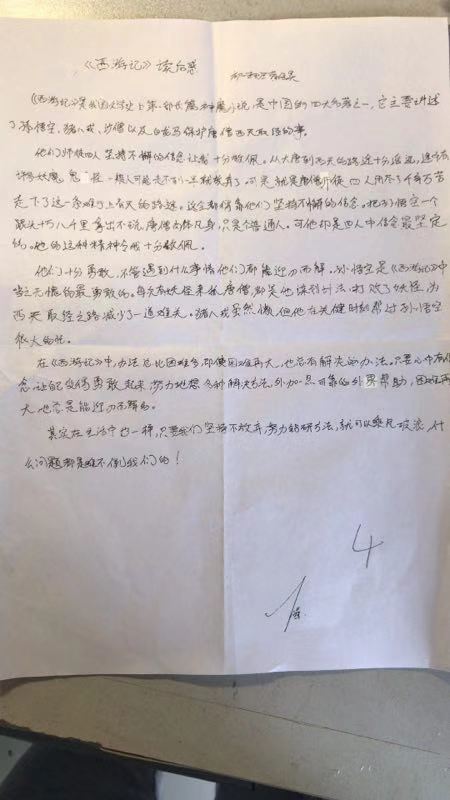 《西游记》读后感
《西游记》是我国文学史上第一部长篇神魔小说,是中国的四大名著之一,它主要讲述
了孙悟空、猪八戒、沙僧以及白龙马保护唐僧西天取经的事。
他们师徒四人坚持不懈的信念让我十分敬佩。从大唐到西天的路途十分遥远,途中有
许多妖魔鬼怪一般人可能走不到一半就放弃了。可是就是唐僧师徒四人用尽了千辛万苦
走下了这一条难于上青天的路途。这全都得靠他们坚持不懈的信念。把孙悟空一个
跟头十万八千里拿出不说,唐僧肉体凡身,只是个普通人。可他却是四人中信念最坚定
的。他的这种精神令我十分敬佩。
他们十分勇敢,不管遇到什么事情他们都能迎刃而解。孙悟空是《西游记》中
当之无愧的最勇敢的。每次有妖怪来抓唐僧,都是他识别计法,打败了妖怪,为
西天取经之路减少了一道难关。猪八戒虽然懒,但他在关键时刻帮过孙悟空
很大的忙。
在《西游记》中,办法总比困难多,即使困难再大,也总有解决的办法。只要心中有信
念,让自己变得勇敢起来,努力地想各种解决方法,外加一点可靠的外界帮助,困难再
大,也总是能迎刃而解的。
其实在生活中也一样,只要我们坚持不放弃,努力钻研方法,就可以乘风破浪,什
么问题都是难不倒我们的!
4